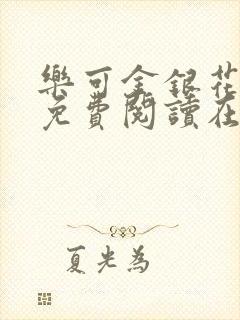 樂可金銀花
免費閱讀在
夏光為